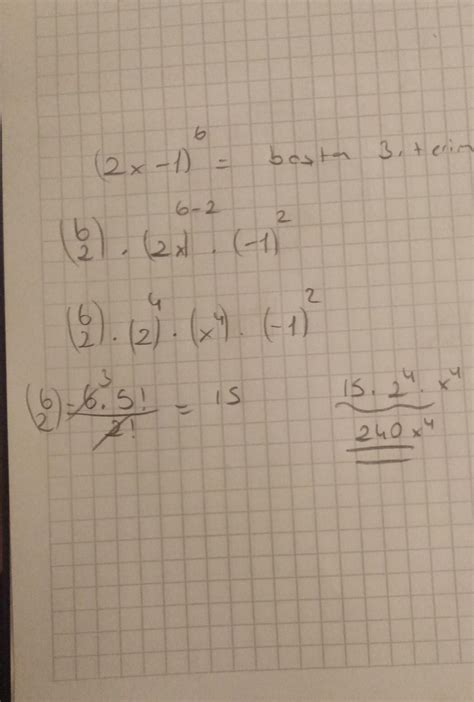 (2x-1)^6 = baştan 3. terim
(6 2) . (2x)^6-2 . (-1)^2
(6 2) . (2)^4 . (x^4) . (-1)^2
(6 2) = 6^3 . 5! / 2! = 15
15 . 2^4 . x^4
240x^4